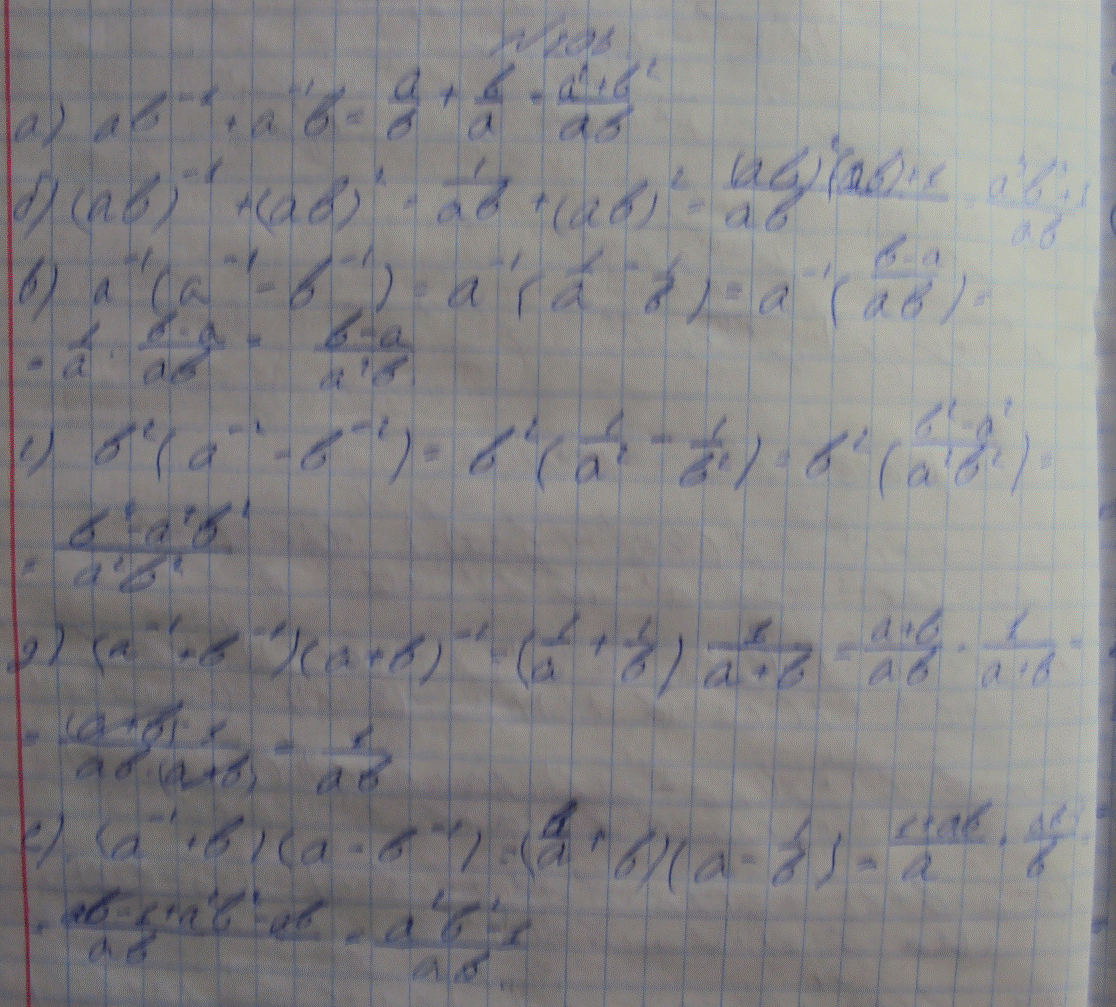 а) ab⁻¹ + a⁻¹b = a/b + b/a = (a² + b²)/(ab)
б) (ab)⁻¹ + (ab)² = 1/(ab) + (ab)² = ((ab)²(ab)+1)/(ab) =
в) a⁻¹(a⁻¹ - b⁻¹) = a⁻¹(1/a - 1/b) = a⁻¹((b-a)/(ab)) =
= 1/a · (b-a)/(ab) = (b-a)/(a²b)
г) b²(a⁻² - b⁻²) = b²(1/a² - 1/b²) = b²((b²-a²)/(a²b²)) =
= (b² - a²b²)/(a²b²)
д) (a⁻¹ + b⁻¹)(a+b)⁻¹ = (1/a + 1/b) 1/(a+b) = (a+b)/(ab) · 1/(a+b) =
= ((a+b)·1)/(ab·(a+b)) = 1/(ab)
е) (a⁻¹ + b)(a - b⁻¹) = (1/a + b)(a - 1/b) = (1+ab)/a ·
= (ab-1+a²b²-ab)/(ab) = (a²b²-1)/(ab)